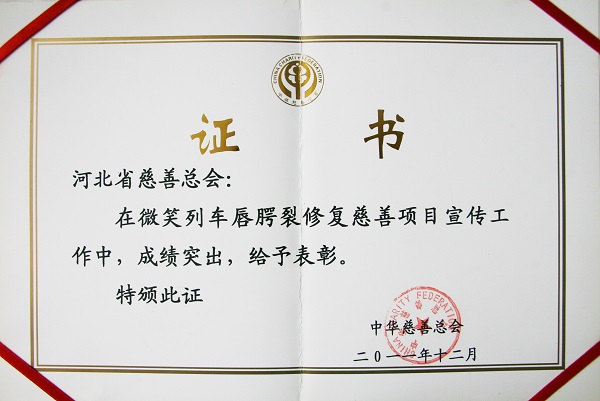 CHINA CHARITY FEDERATION
证 书
河北省慈善总会：
在微笑列车唇腭裂修复慈善项目宣传工
作中，成绩突出，给予表彰。
特颁此证
CHINA CHARITY FEDERATION
中华慈善总会
二〇一一年十二月